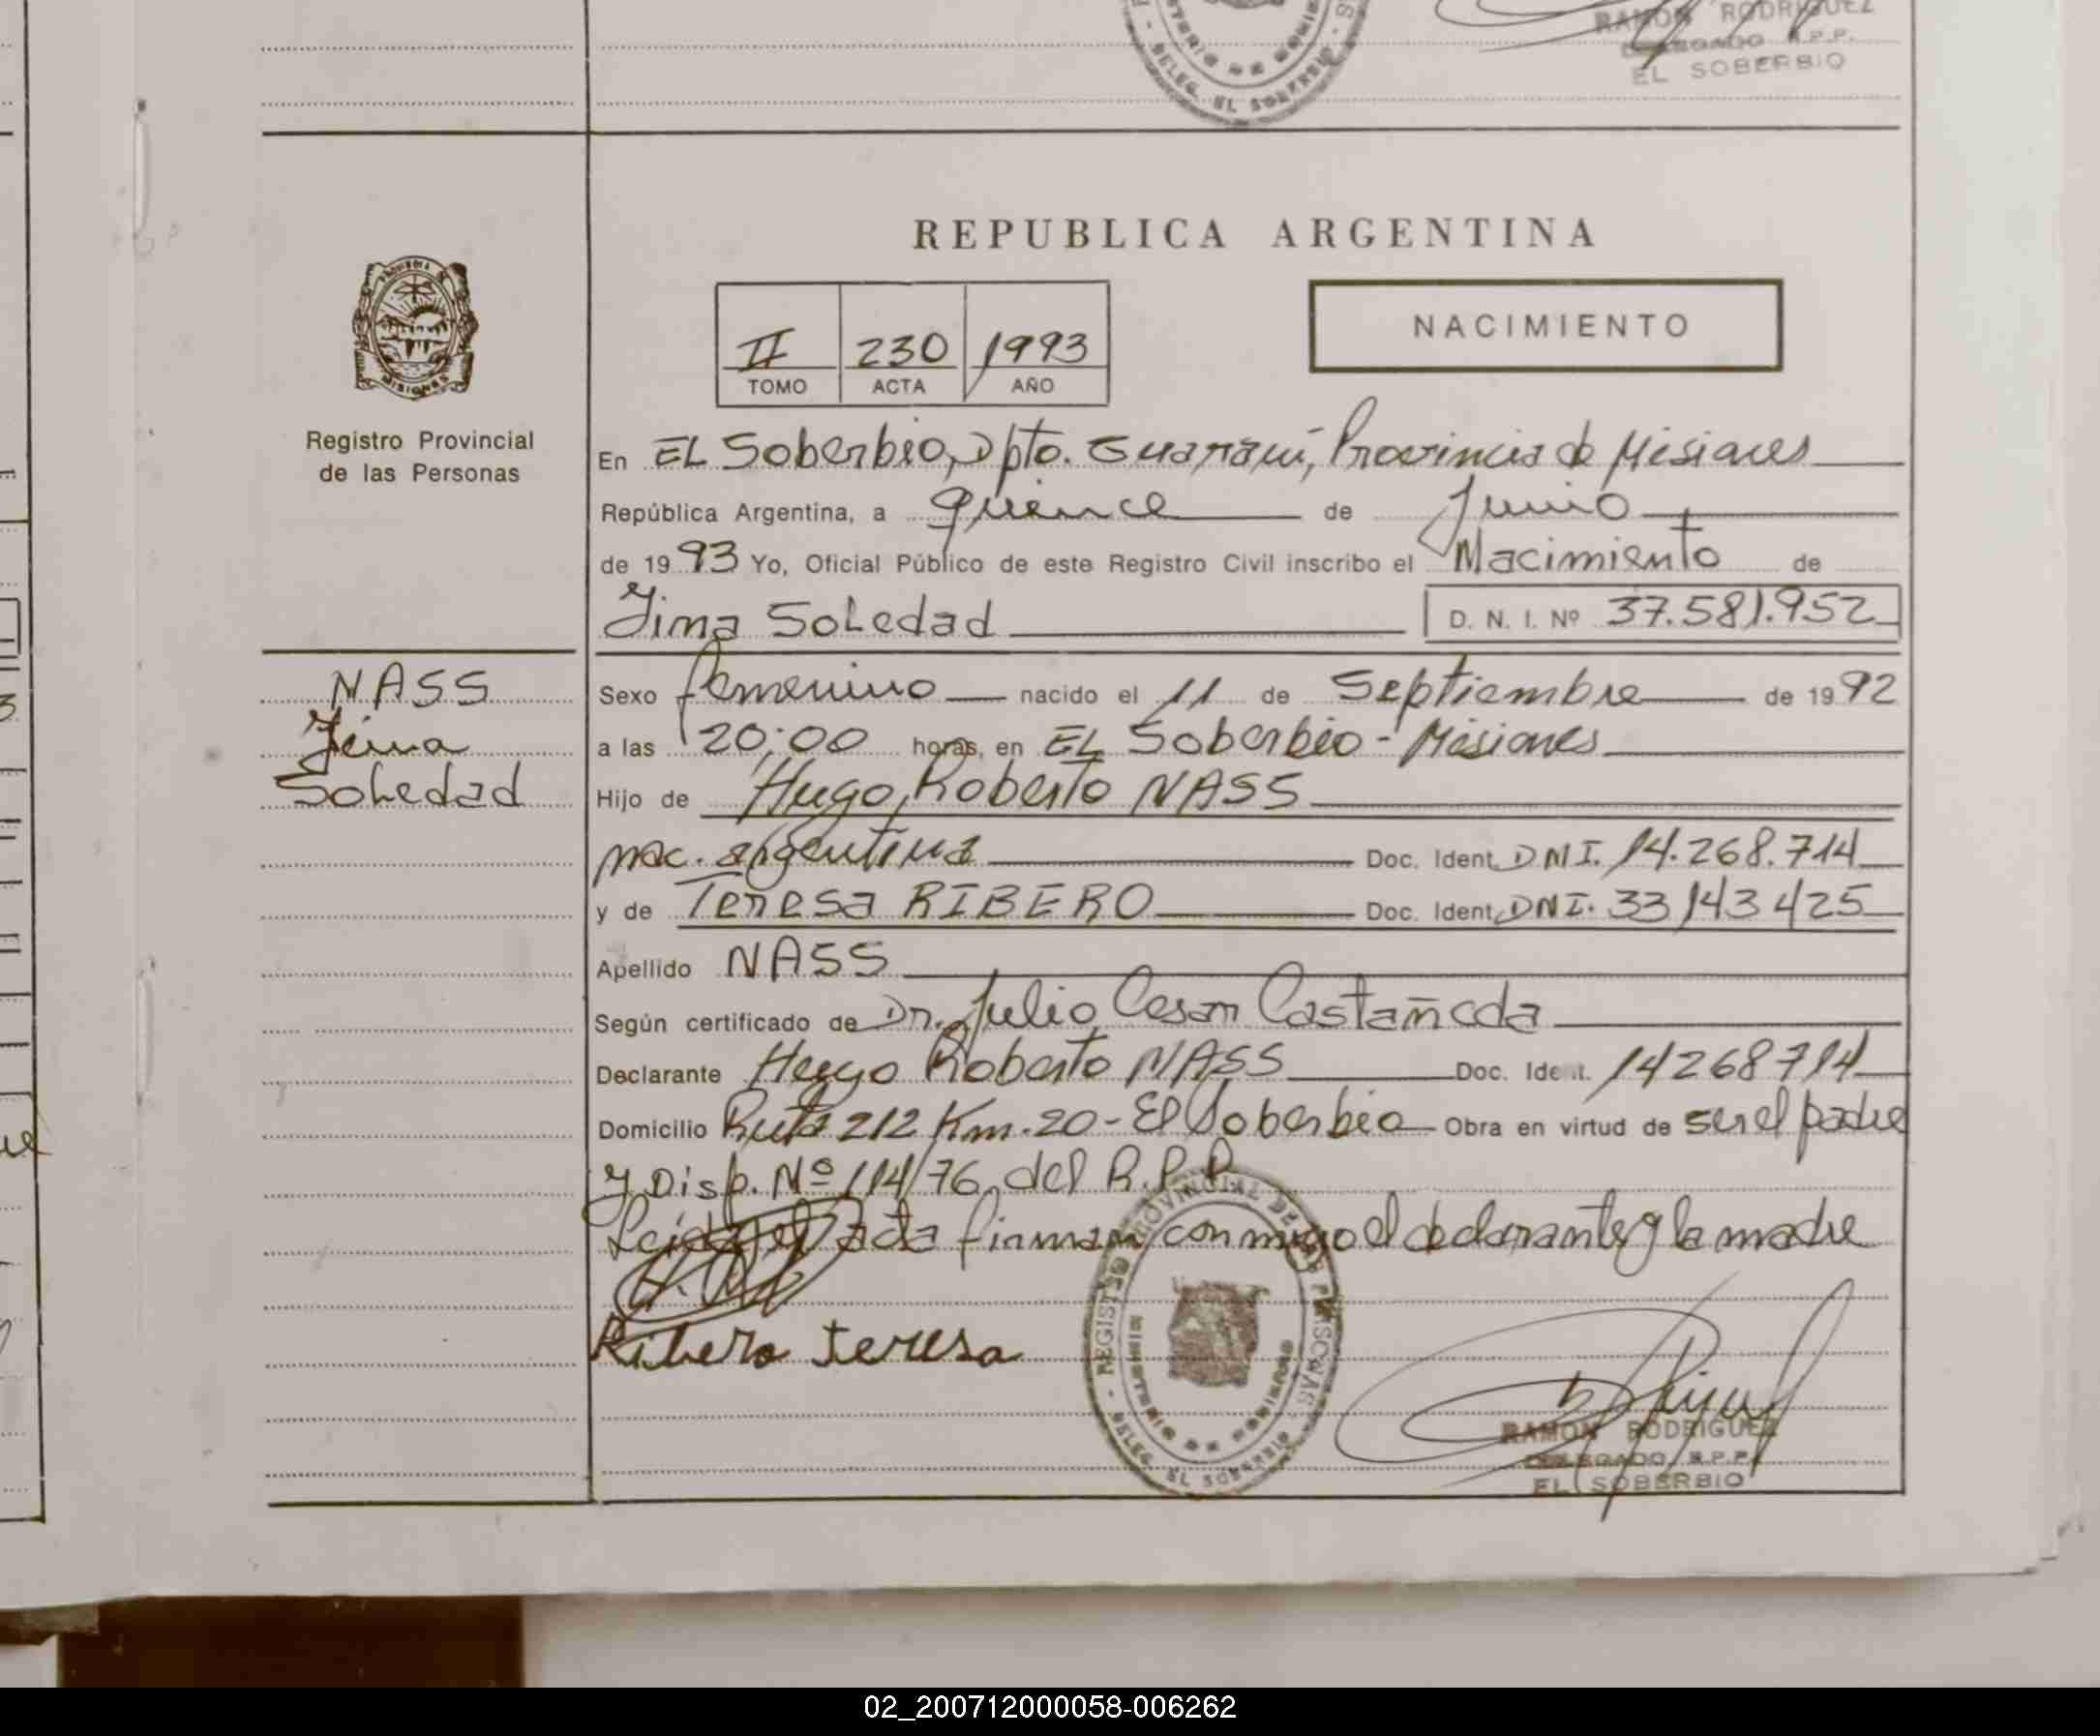 RAMON RODRIGUEZ
DELEGADO R.P.P.
EL SOBERBIO
DELEG. EL SOBERBIO
REPUBLICA ARGENTINA
MISIONES
II 230 1993
TOMO ACTA AÑO
NACIMIENTO
Registro Provincial
de las Personas
En EL Soberbio, Dpto. Guaraní, Provincia de Misiones
República Argentina, a quince de Junio
de 1993 Yo, Oficial Público de este Registro Civil inscribo el Nacimiento de
Soledad D. N. I. Nº 37.581.952
NASS
Soledad
Sexo femenino nacido el 11 de Septiembre de 1992
a las 20:00 horas, en EL Soberbio - Misiones
Hijo de Hugo Roberto NASS
nac. argentina Doc. Ident. DNI. 14.268.714
y de Teresa RIBERO Doc. Ident. DNI. 33143425
Apellido NASS
Según certificado de Dr. Julio Cesar Castañeda
Declarante Hugo Roberto NASS Doc. Ident. 14268714
Domicilio Ruta 212 Km. 20 - El Soberbio Obra en virtud de ser el padre
y Disp. Nº 114/76 del R.P.P.
Leida el acta firman conmigo el declarante y la madre
Ribero Teresa
REGISTRO PROVINCIAL DE LAS PERSONAS
MINISTERIO DE GOBIERNO
DELEG. EL SOBERBIO
RAMON RODRIGUEZ
DELEGADO R.P.P.
EL SOBERBIO
02_200712000058-006262